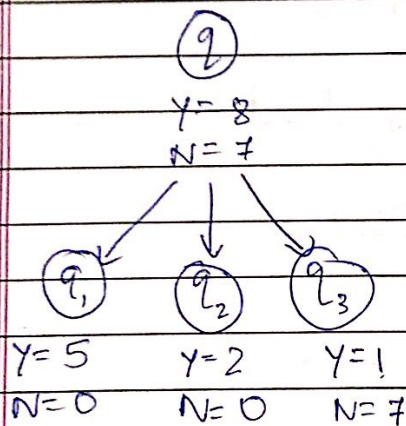 q
Y = 8
N = 7
q₁ q₂ q₃
Y = 5 Y = 2 Y = 1
N = 0 N = 0 N = 7